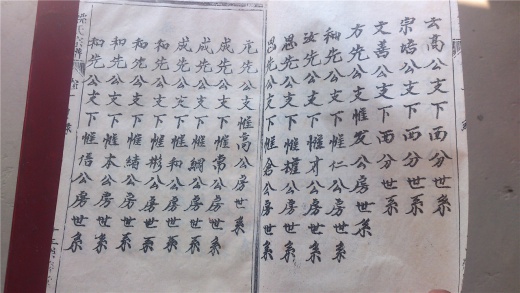 云高公支下而分世系
宗培公支下而分世系
文善公支下而分世系
方先公支惟发公房世系
和先公支下惟仁公房世系
汝先公支下惟才公房世系
思先公支下惟權公房世系
思先公支下惟倉公房世系
先公支惟高公房世系
成先公支下惟常公房世系
成先公支下惟綱公房世系
成先公支下惟和公房世系
和先公支下惟彬公房世系
和先公支下惟緒公房世系
和先公支下惟本公房世系
和先公支下惟信公房世系